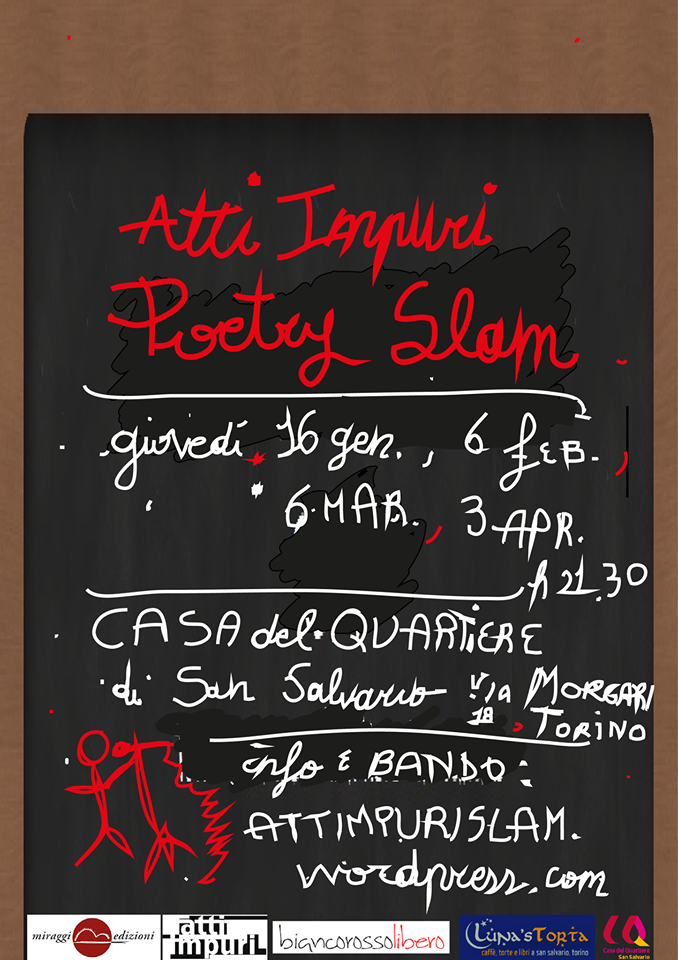 Atti Impuri
Poetry Slam
giovedì 16 gen., 6 FEB.,
6 MAR., 3 APR.
h 21.30
CASA del QUARTIERE
di San Salvario Via MORGARI
18, TORINO
info E BANDO:
ATTIMPURISLAM.
wordpress.com
miraggi edizioni
atti
impuri
biancorossolibero
Luna'sTorta
caffè, torte e libri a san salvario, torino
Casa del Quartiere
San Salvario